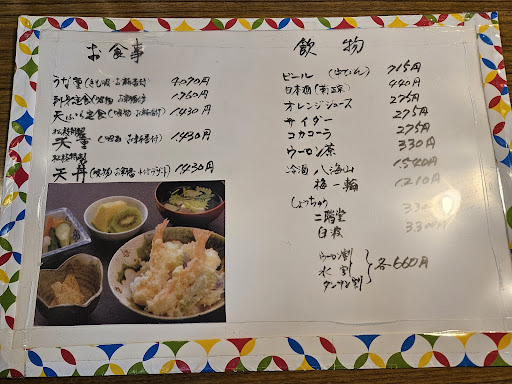 お食事
うな重(きも吸・お新香付) 4.070円
刺身定食(吸物 お新香付) 1.760円
天ぷら定食(吸物 お新香付) 1.430円
天重(吸物 お新香付) 1.430円
天丼(吸物・お新香・) 1.430円
飲物
ビール(中びん) 715円
日本酒(菊正宗) 440円
オレンジジュース 275円
サイダー 275円
コカコーラ 275円
ウーロン茶 330円
冷酒 八海山 1.540円
梅一輪 1.210円
しょうちゅう
二階堂
白波 3.300円
ウーロン割
水割
タンサン割
各660円